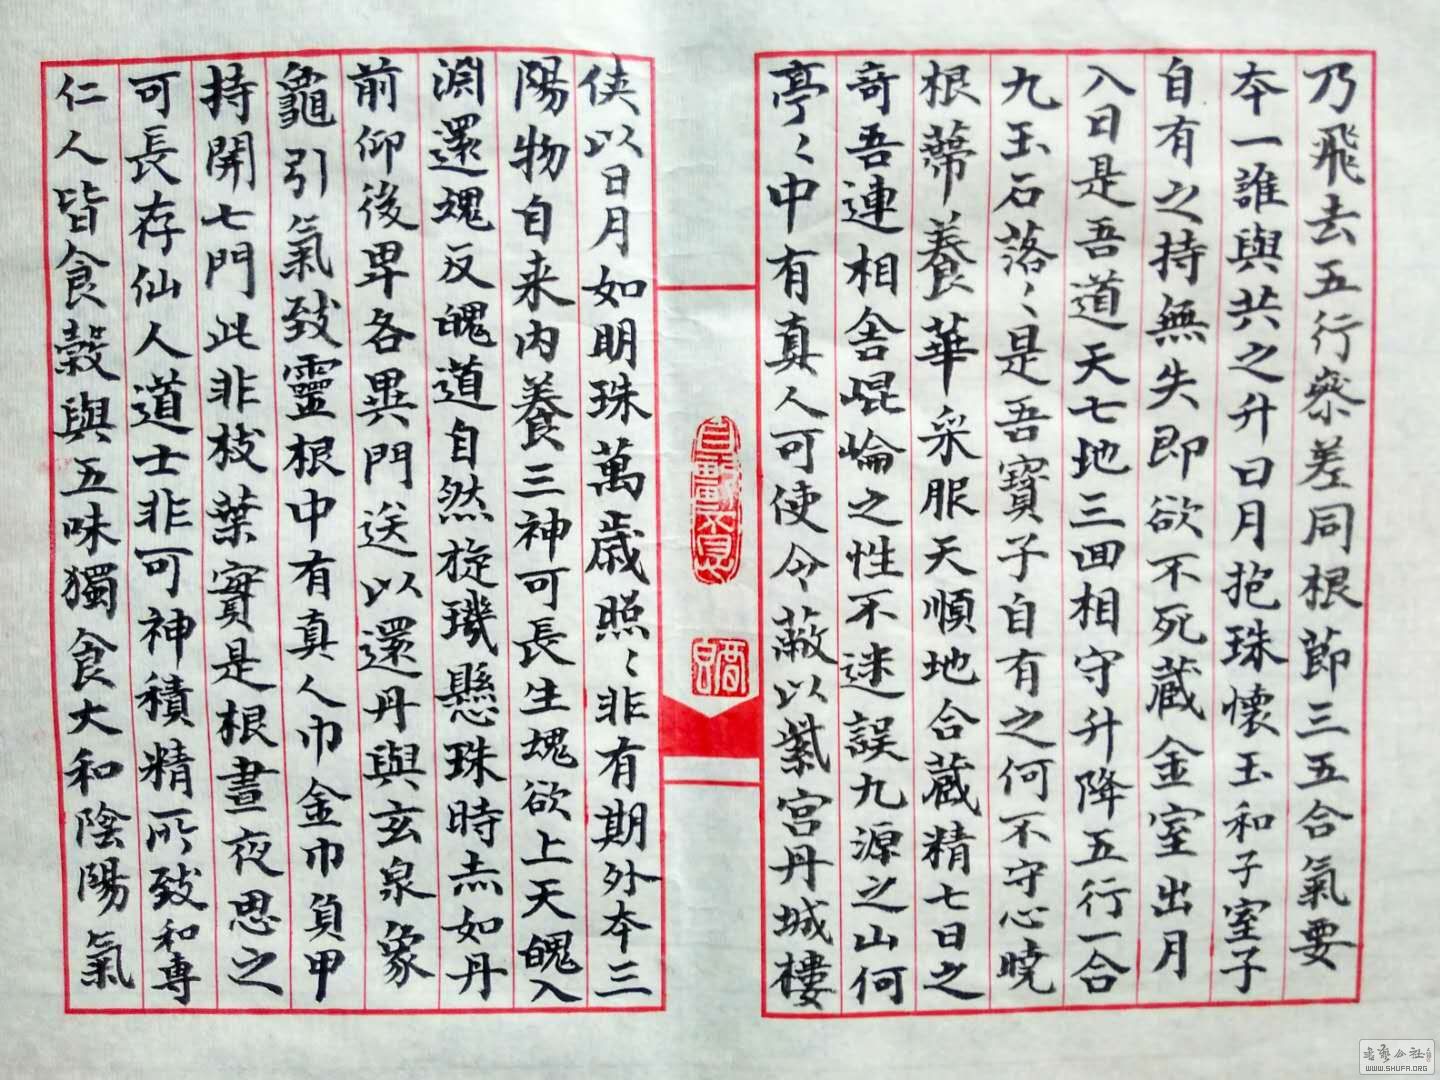 乃飛去五行叅差同根節三五合氣要
夲一誰與共之升日月抱珠懷玉和子室子
自有之持無失即欲不死蔵金室出月
入日是吾道天七地三囬相守升降五行一合
九玉石落〻是吾寶子自有之何不守心曉
根蔕養華采服天順地合蔵精七日之
竒吾連相舎崐崘之性不迷誤九源之山何
亭〻中有真人可使令蔽以紫宫丹城楼
侠以日月如明珠萬歳照〻非有期外夲三
陽物自来内養三神可長生魂欲上天魄入
渊還魂反魄道自然旋璣懸珠時赤如丹
前仰後卑各異門送以還丹與玄泉象
龜引氣致靈根中有真人巾金巾負甲
持開七門此非枝葉實是根晝夜思之
可長存仙人道士非可神積精所致和専
仁人皆食糓與五味獨食大和陰陽氣
書藝公社
WWW.SHUFA.ORG